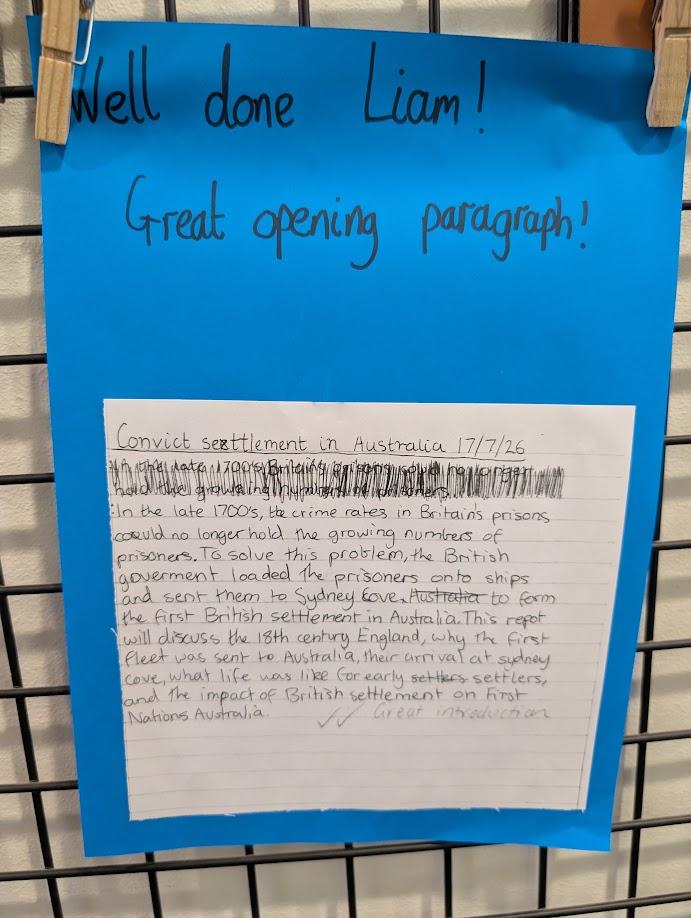 Well done Liam!
Great opening paragraph!
Convict settlement in Australia 17/7/26
In the late 1700's, Britain's prisons could no longer
hold the growing numbers of prisoners.
In the late 1700's, the crime rates in Britain's prisons
could no longer hold the growing numbers of
prisoners. To solve this problem, the British
goverment loaded the prisoners onto ships
and sent them to Sydney cove. Australia to form
the first British settlement in Australia. This repot
will discuss the 18th century England, why the first
fleet was sent to Australia, their arrival at sydney
cove, what life was like for early settlers settlers,
and the impact of British settlement on First
Nations Australia.
✓✓ Great introduction